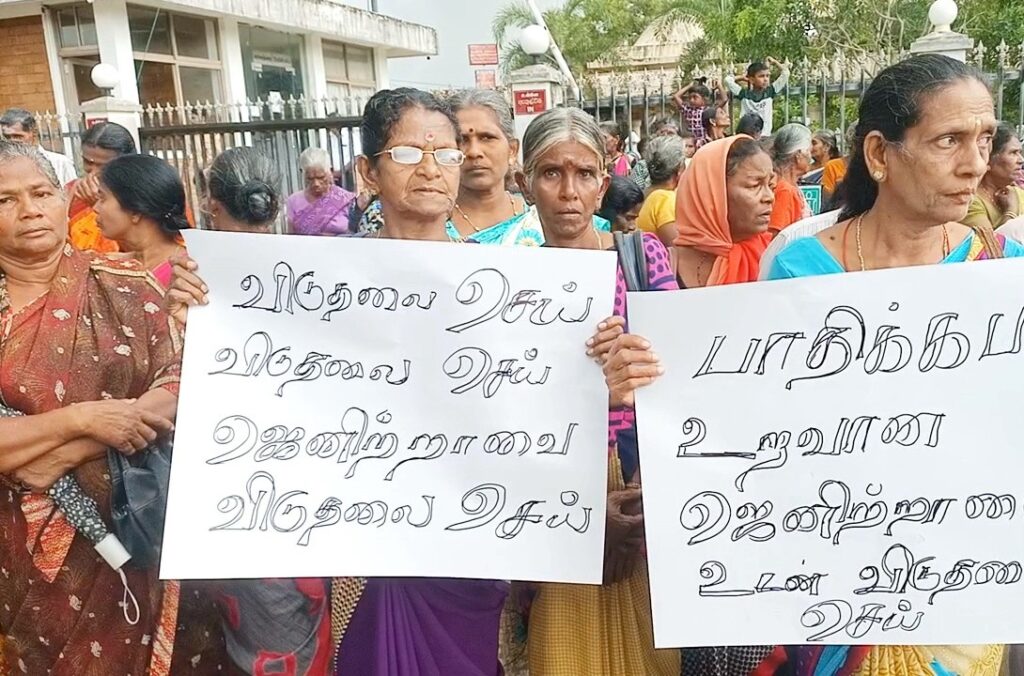 IN
விடுதலை செய்
விடுதலை செய்
ஜெனிற்றாவை
விடுதலை செய்
பாதிக்கப
உறவான
ஜெனிற்றாவை
உடன் விடுதலை
செய்